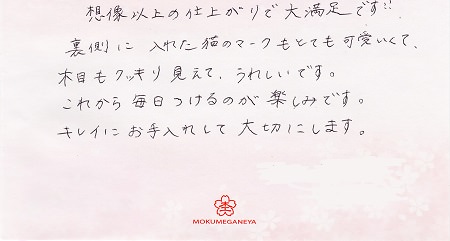 想像以上の仕上がりで大満足です!!
裏側に入れた猫のマークもとても可愛いくて、
木目もクッキリ見えて、うれしいです。
これから毎日つけるのが楽しみです。
キレイにお手入れして大切にします。
MOKUMEGANEYA